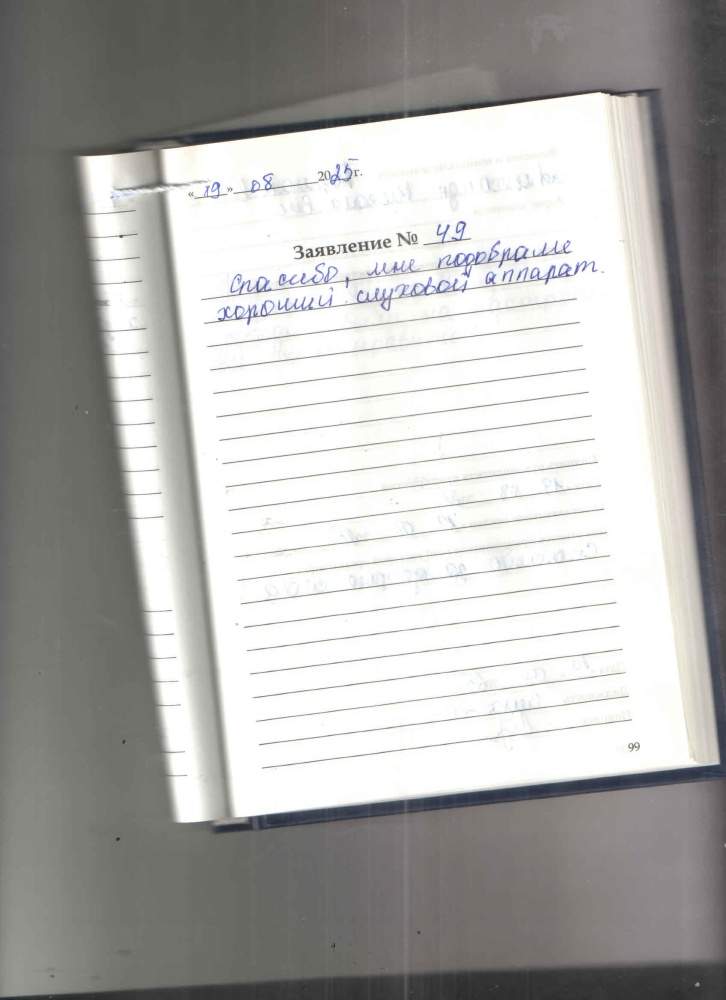 « 19 » 08 2025г.
Заявление № 49
Спасибо, мне подобрали
хороший слуховой аппарат.
99